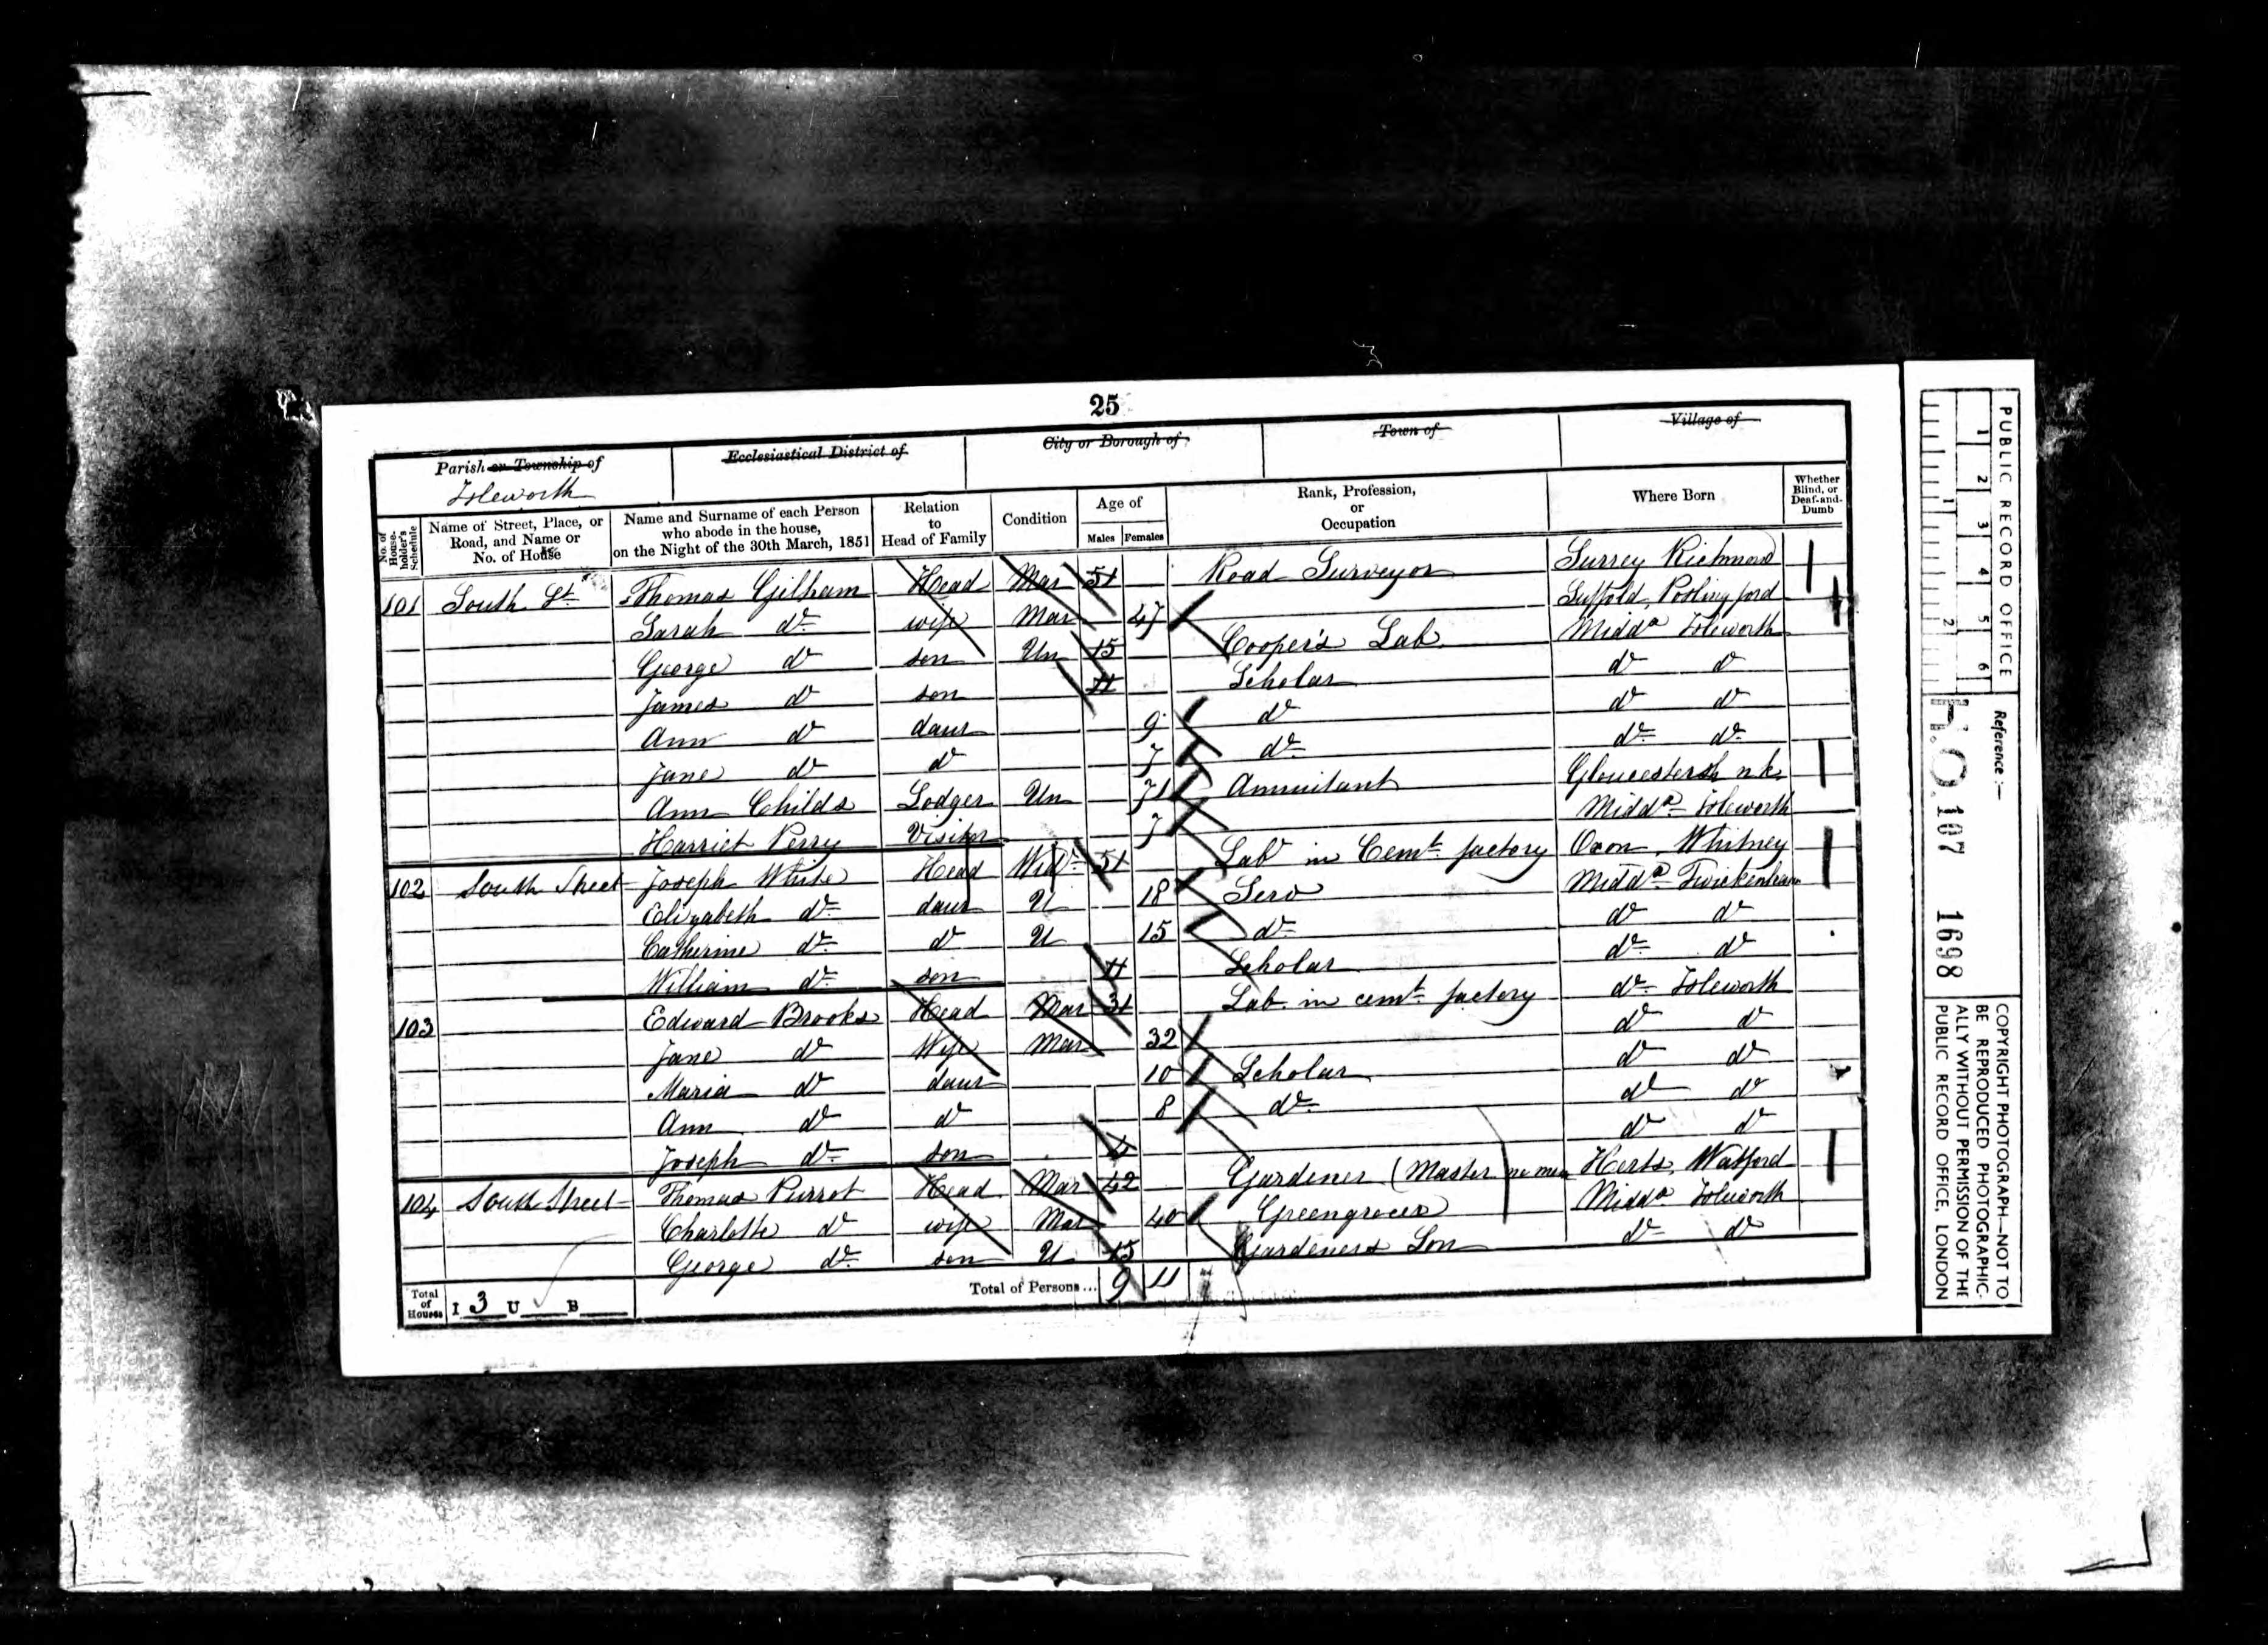 25
Parish or Township of
Isleworth
Ecclesiastical District of
City or Borough of
Town of
Village of
No. of House-holder's Schedule
Name of Street, Place, or Road, and Name or No. of House
Name and Surname of each Person who abode in the house, on the Night of the 30th March, 1851
Relation to Head of Family
Condition
Age of
Males Females
Rank, Profession, or Occupation
Where Born
Whether Blind, or Deaf-and-Dumb
101 South St Thomas Gilham Head Mar 51 Road Surveyor Surrey Richmond
Sarah do wife Mar 47 Suffold
George do son Un 15 Cooper's Lab Midda Isleworth
James do son 11 Scholar do do
Ann do daur 9 do do do
Jane do do 7 do do do
Ann Childs Lodger Un 71 Annuitant Gloucestersh n k
Harriet Perry Visitor 7 Midda Isleworth
102 South Street Joseph White Head Widr 51 Labr in Cemt factory Oxon Whitney
Elizabeth do daur U 18 Serv Midda Twickenham
Catherine do do U 15 do do do
William do son 11 Scholar do do
103 Edward Brooks Head Mar 31 Lab. in cemt factory do Isleworth
Jane do Wife Mar 32 do do
Maria do daur 10 Scholar do do
Ann do do 8 do do do
Joseph do son 4 do do
104 South Street Thomas Purrot Head Mar 42 Gardener (Master no men Herts Watford
Charlotte do wife Mar 40 Greengrocer Midda Isleworth
George do son U 15 Gardeners Son do do
Total of Houses I 3 U B
Total of Persons... 9 11
PUBLIC RECORD OFFICE
1 2 3 4 5 6
1 2
Reference :—
H.O. 107 1698
COPYRIGHT PHOTOGRAPH—NOT TO
BE REPRODUCED PHOTOGRAPHIC-
ALLY WITHOUT PERMISSION OF THE
PUBLIC RECORD OFFICE, LONDON